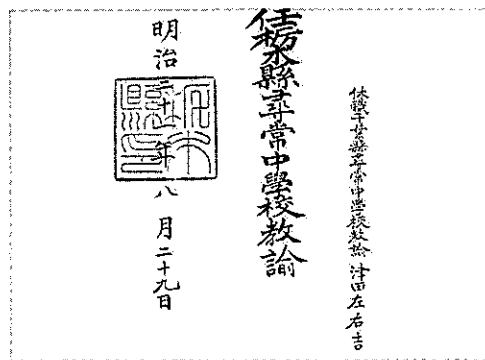 休職千葉縣尋常中學校教諭 津田左右吉
任栃木縣尋常中學校教諭
明治三十一年八月二十九日